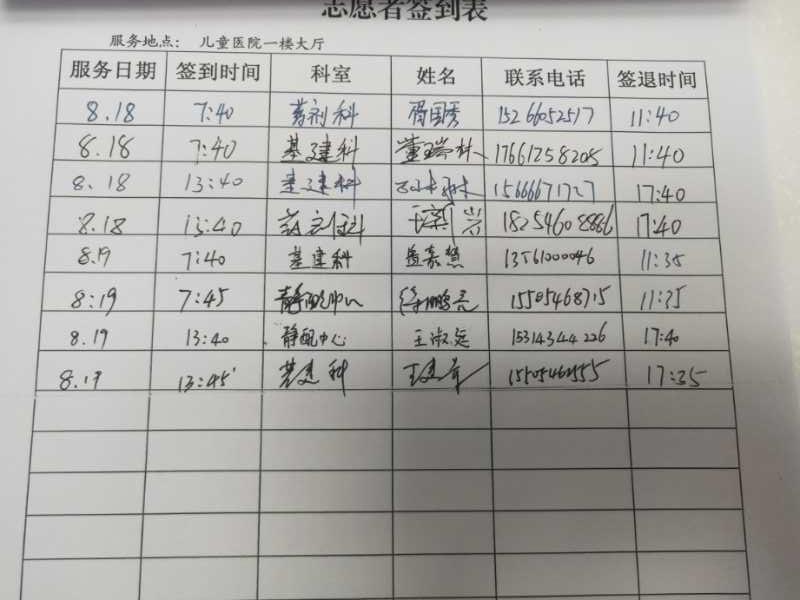 志愿者签到表
服务地点： 儿童医院一楼大厅
服务日期 签到时间 科室 姓名 联系电话 签退时间
8.18 7:40 药剂科 周国秀 15266052517 11:40
8.18 7:40 基建科 董瑞林 17661258205 11:40
8.18 13:40 基建科 15666671727 17:40
8.18 13:40 药剂科 18254608886 17:40
8.19 7:40 基建科 13561000046 11:35
8:19 7:45 静配中心 徐鹏亮 15505468715 11:35
8.19 13:40 静配中心 王淑运 15314344226 17:40
8.19 13:45 基建科 17:35